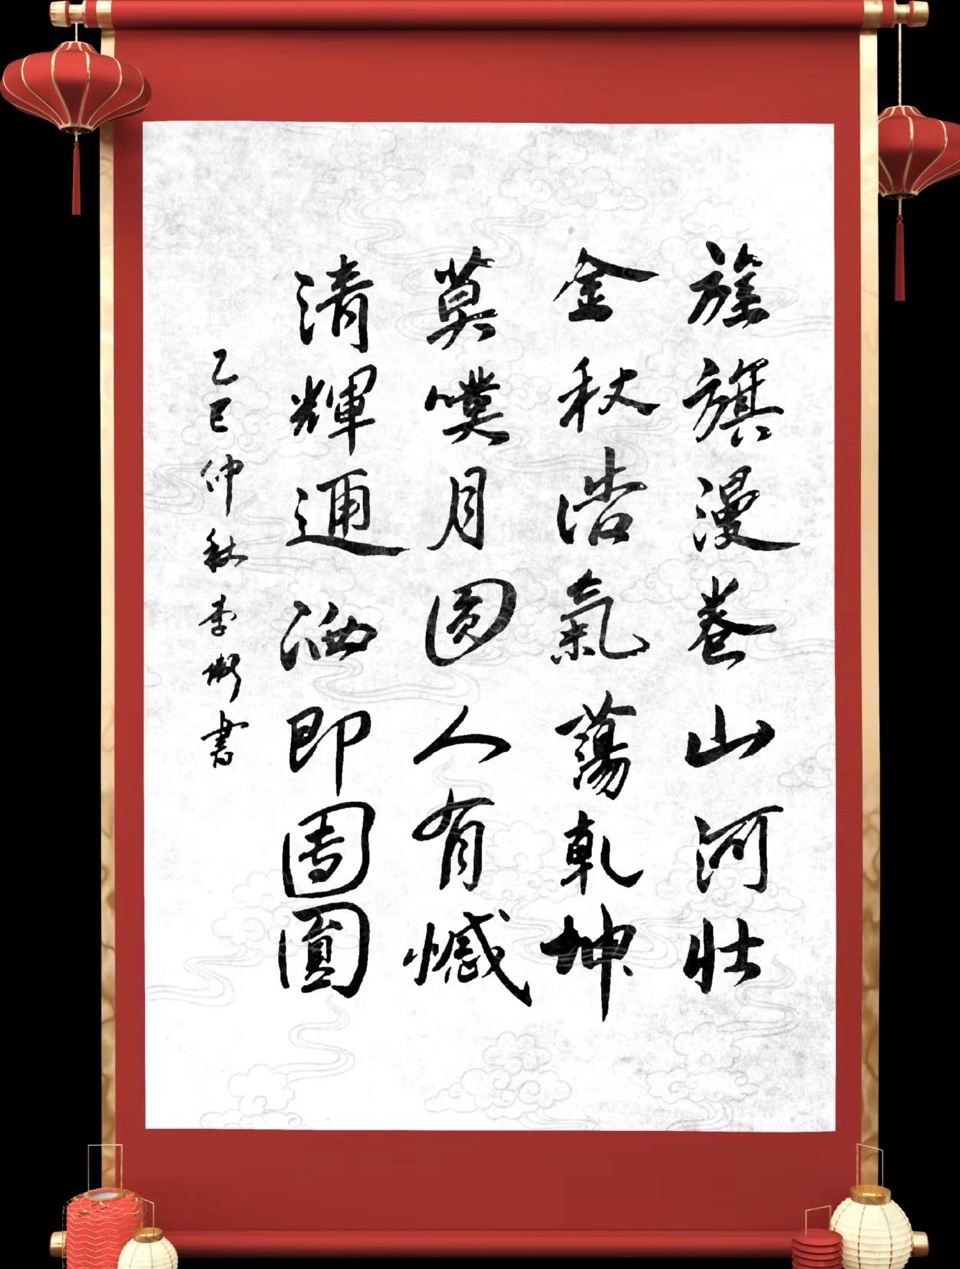 旌旗漫卷山河壮
金秋浩氣蕩乾坤
莫嘆月圆人有憾
清輝遍洒即團圓
乙巳仲秋李書